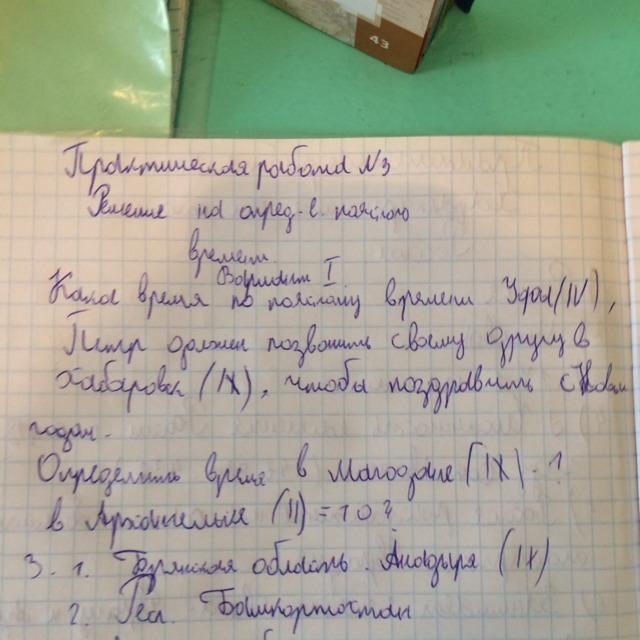 43
Практическая работа N3
Решение на опред-е поясного
времени
Вариант I.
Какое время по поясному времени Уфа (IV),
Петр должен позвонить своему другу в
Хабаровск (IX), чтобы поздравить с Новым
годом.
Определить время в Магадане (IX) - 1
в Архангельске (II) = 10?
3. 1. Брянская область. Анадыря (IX)
2. Башкортостан